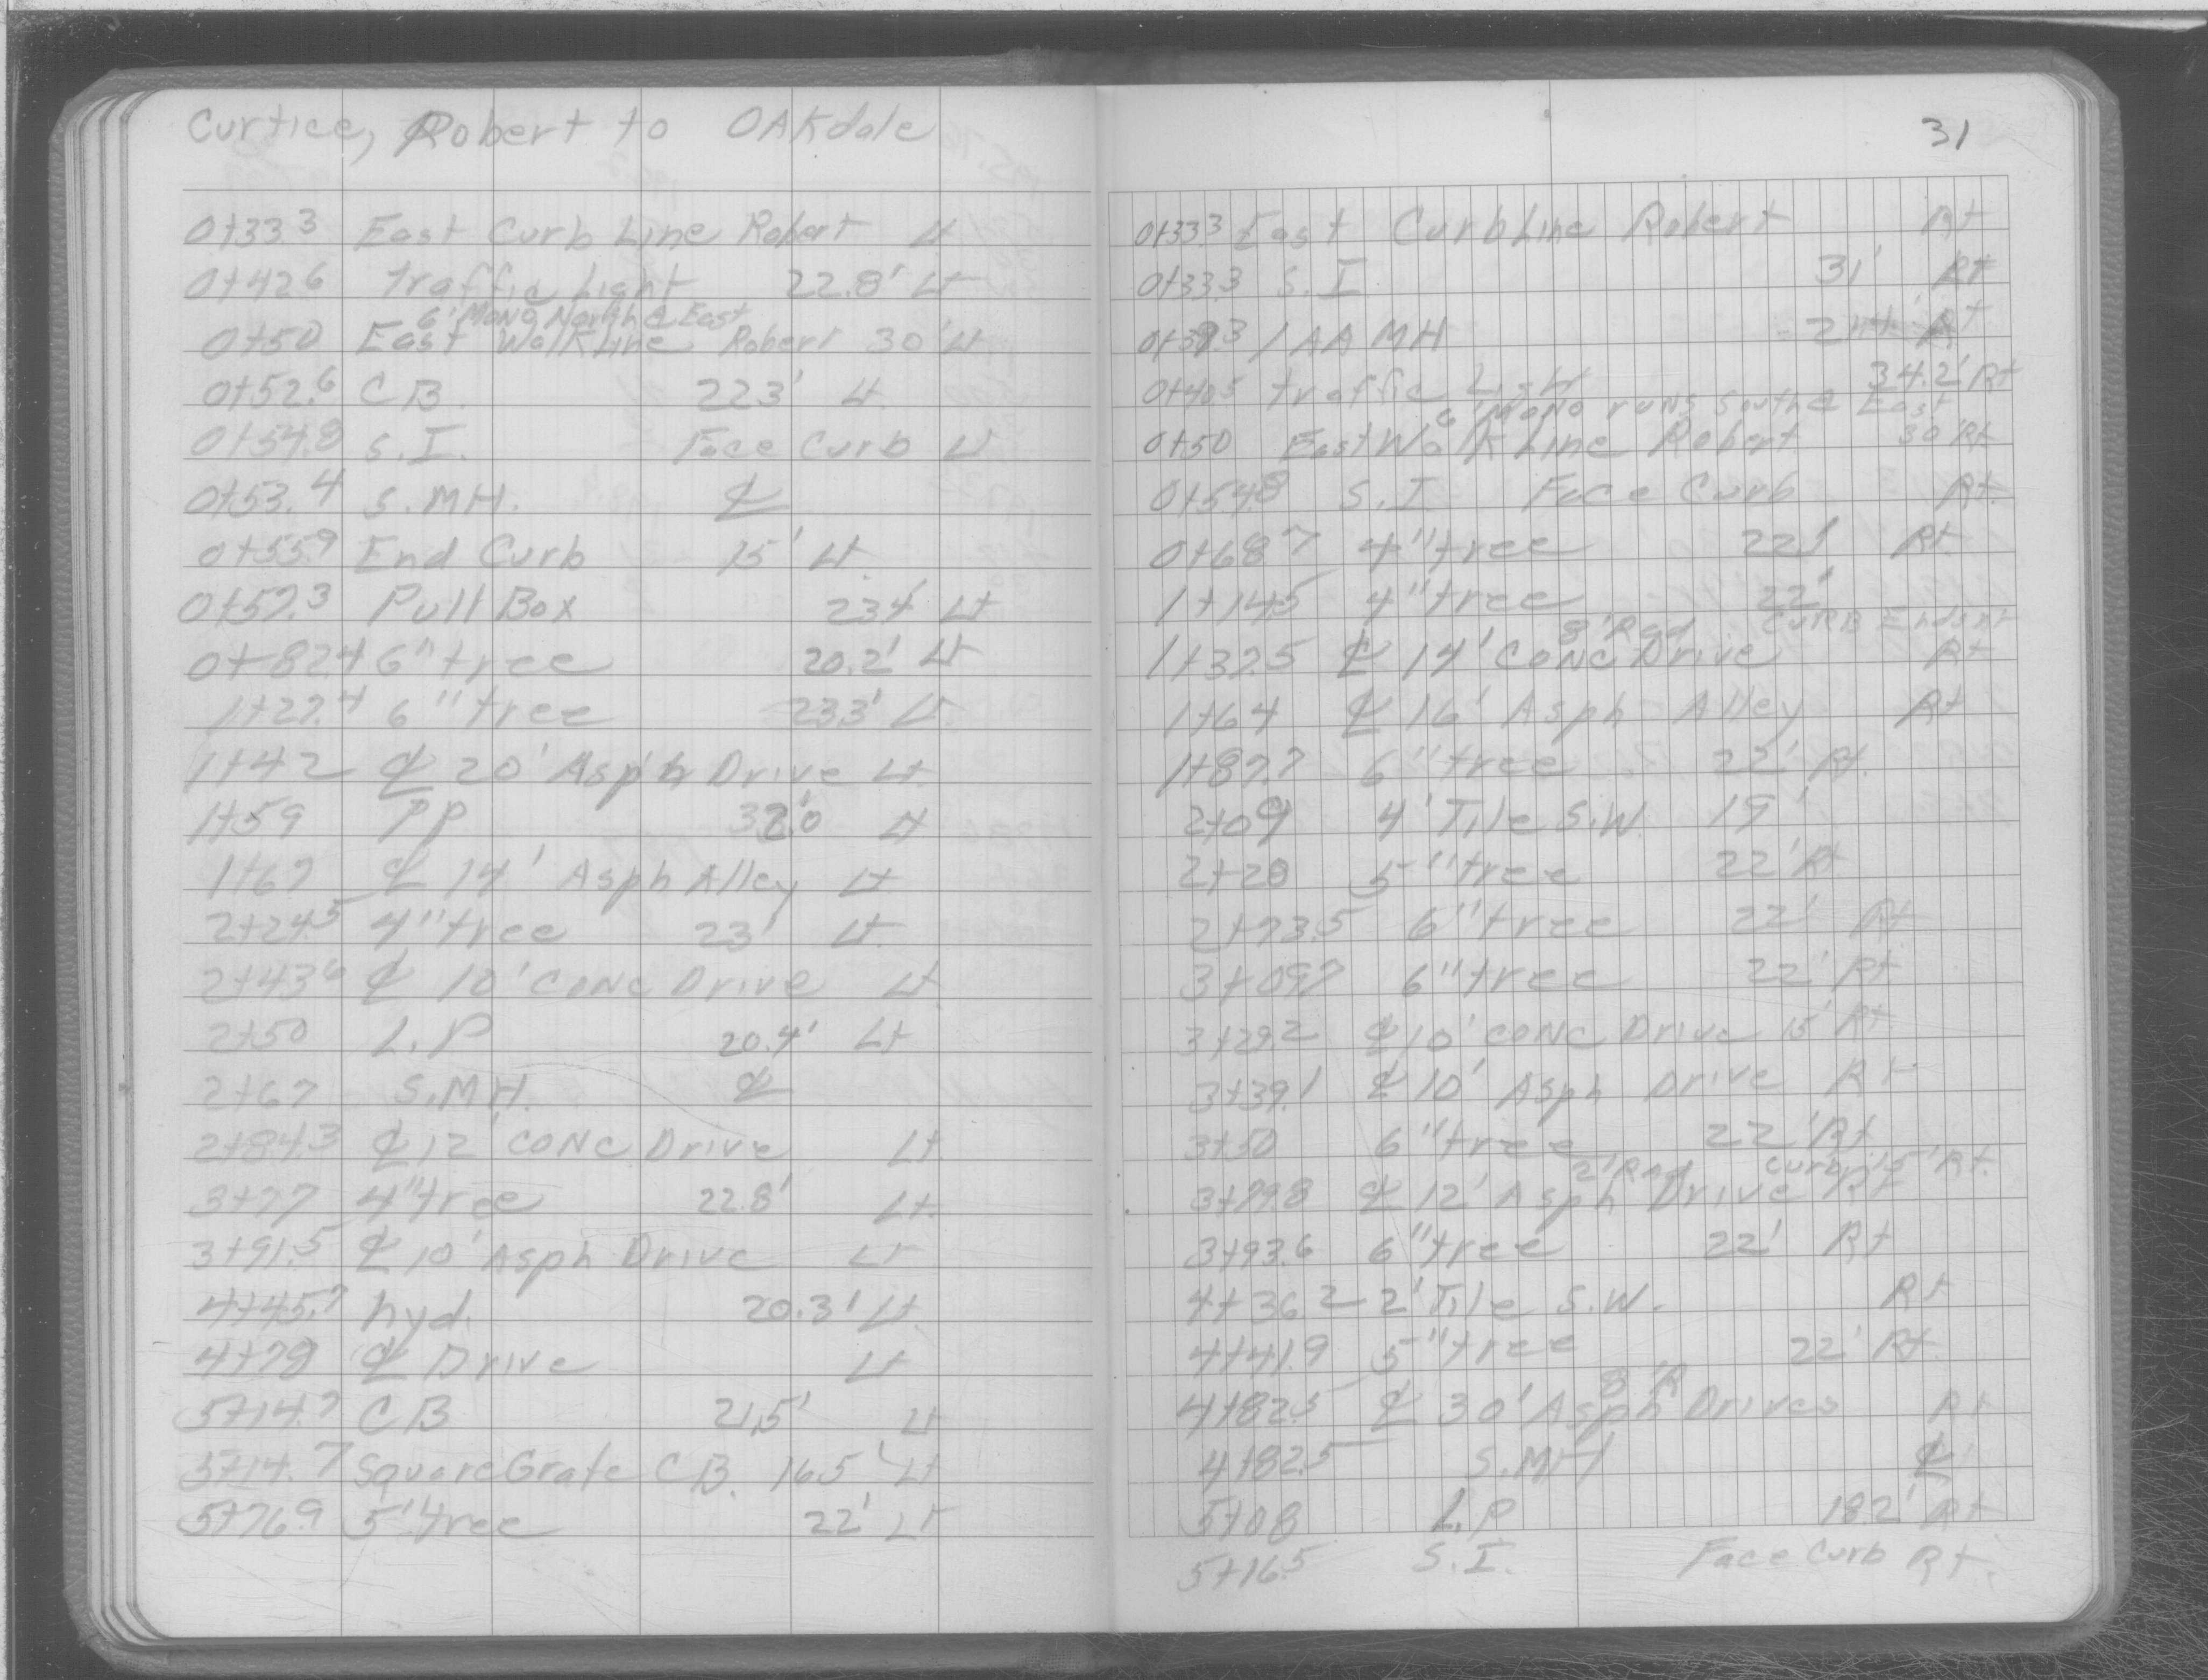 Curtice, Robert to OAKdale
0+33.3 East Curb Line Robert Lt
0+42.6 Traffic Light 22.8' Lt
6' Mono North & East
0+50 East Walk Line Robert 30' Lt
0+52.6 C B. 22.3' Lt.
0+54.8 S.I. Face Curb Lt
0+53.4 S.MH. ℄
0+55.9 End Curb 15' Lt.
0+57.3 Pull Box 23.4' Lt
0+82.4 6" tree 20.2' Lt
1+27.4 6" tree 23.3' Lt.
1+42 ℄ 20' Asph Drive Lt.
1+59 PP Lt
1+67 ℄ 14' Asph Alley Lt
2+24.5 4" tree 23' Lt.
2+43.6 ℄ 10' CONC Drive Lt.
2+50 L.P 20.4' Lt
2+67 S.MH. ℄
2+84.3 ℄ 12' CONC Drive Lt.
3+77 4" tree 22.8' Lt.
3+91.5 ℄ 10' Asph Drive Lt
4+45.7 hyd. 20.3' Lt.
4+79 ℄ Drive Lt
5+14.7 C B 21.5' Lt
5+14.7 Square Grate C B. 16.5' Lt
5+76.9 5" tree 22' Lt
31
0+33.3 East Curb Line Robert Rt
0+33.3 S.I 31' Rt
1 AA MH Rt
0+40.5 traffic Light 34.2' Rt
6' Mono runs South & East
0+50 East Walk Line Robert 30' Rt
0+54.8 S.I Face Curb Rt.
0+68.7 4" tree 22' Rt.
1+14.5 4" tree 22'
8' Rad CURB Ends
1+37.5 ℄ 14' CONC Drive Rt
1+64 ℄ 16' Asph Alley Rt
1+87.7 6" tree 22' Rt.
2+09 4' Tile S.W. 19'
2+28 5" tree 22' Rt
2+73.5 6" tree 22' Rt
3+09.7 6" tree 22' Rt.
3+29.2 ℄ 10' CONC Drive 15' Rt
3+39.1 ℄ 10' Asph Drive Rt
3+50 6" tree 22' Rt
2' Rad curb 15' Rt.
3+79.8 ℄ 12' Asph Drive Rt
3+93.6 6" tree 22' Rt
4+36.2 2' Tile S.W. Rt
4+41.9 5" tree 22' Rt
8' R
4+82.5 ℄ 30' Asph Drives Rt
4+82.5 S.MH ℄
5+08 L.P 18.2' Rt
5+16.5 S.I. Face Curb Rt.